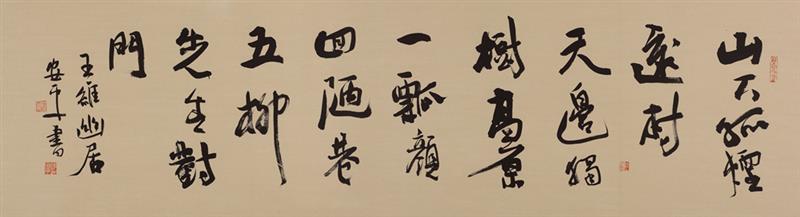 山下孤煙
遠村
天邊獨
樹高原
一瓢顏
回陋巷
五柳
先生對
門
王維幽居
安平書